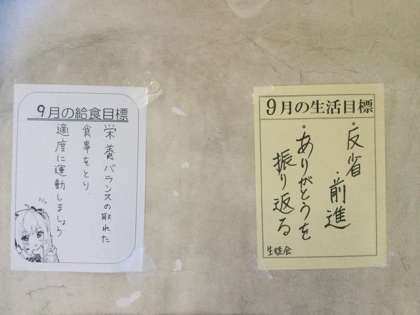 9月の給食目標
栄養バランスの取れた
食事をとり
適度に運動しましょう
9月の生活目標
・反省・前進
・ありがとうを
振り返る
生徒会